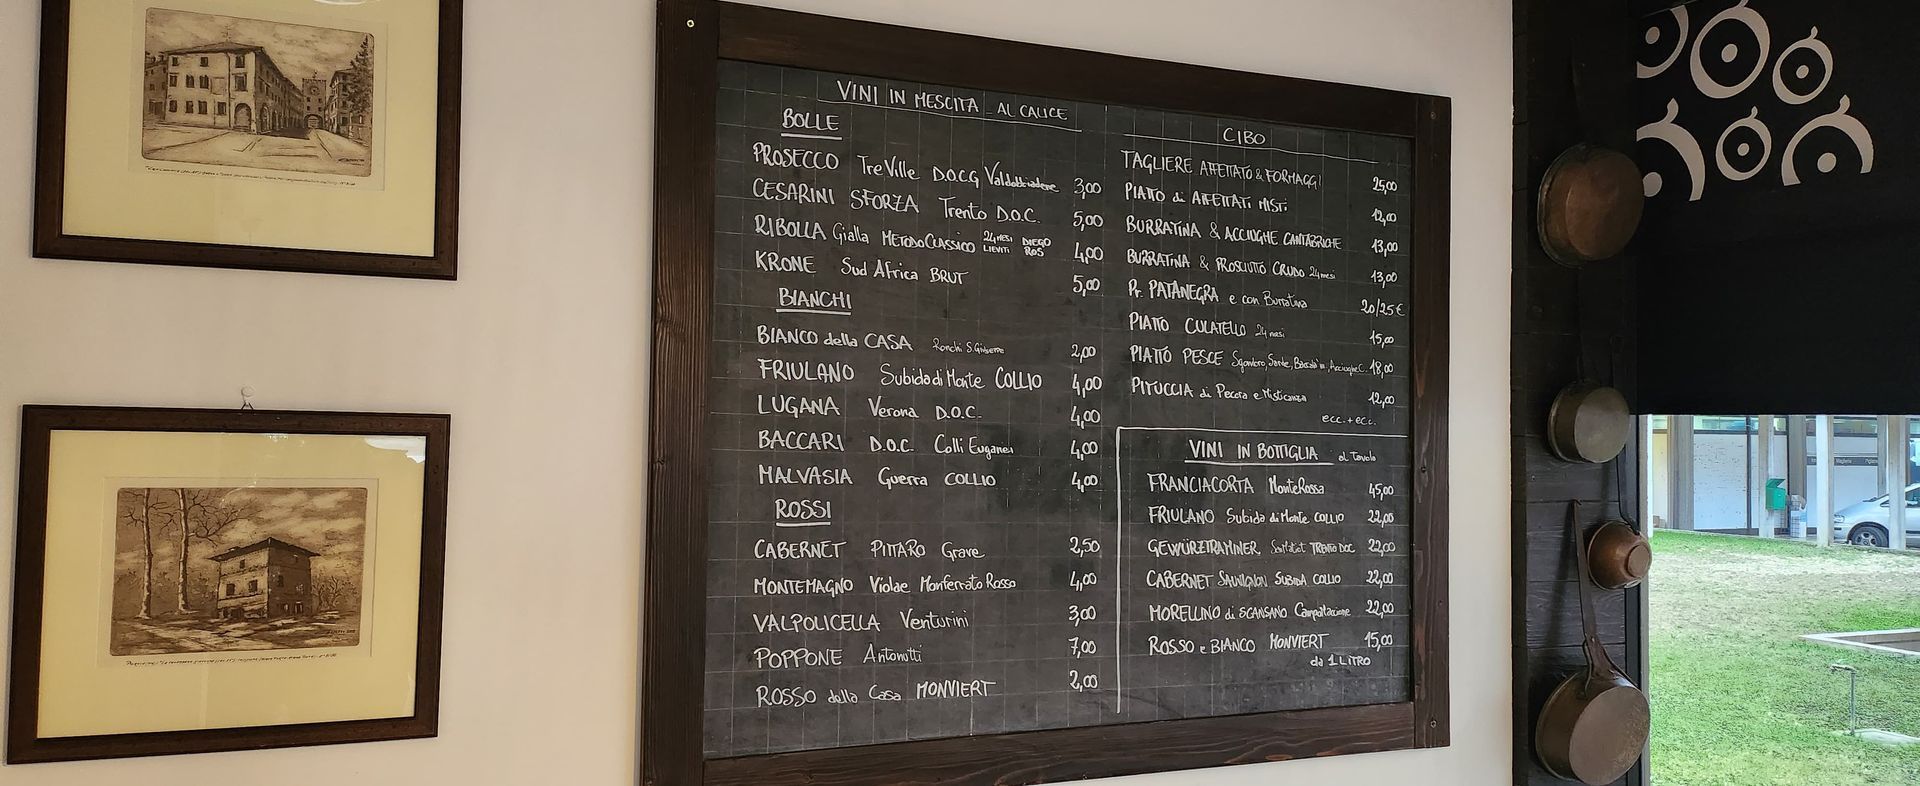 VINI IN MESCITA - AL CALICE
BOLLE
PROSECCO TreVille D.O.C.G Valdobbiadene 3,00
CESARINI SFORZA Trento D.O.C. 5,00
RIBOLLA Gialla METODO CLASSICO 24 MESI LIEVITI DIEGO ROS 4,00
KRONE Sud Africa BRUT 5,00
BIANCHI
BIANCO della CASA Ronchi S. Giuseppe 2,00
FRIULANO Subida di Monte COLLIO 4,00
LUGANA Verona D.O.C. 4,00
BACCARI D.O.C. Colli Euganei 4,00
MALVASIA Guerra COLLIO 4,00
ROSSI
CABERNET PITTARO Grave 2,50
MONTEMAGNO Violae Monferrato Rosso 4,00
VALPOLICELLA Venturini 3,00
POPPONE Antonutti 7,00
ROSSO della Casa MONVIERT 2,00
CIBO
TAGLIERE AFFETTATO & FORMAGGI 25,00
PIATTO di AFFETTATI MISTI 12,00
BURRATINA & ACCIUGHE CANTABRICHE 13,00
BURRATINA & PROSCIUTTO CRUDO 24 mesi 13,00
Pr. PATANEGRA e con Burratina 20/25€
PIATTO CULATELLO 24 mesi 15,00
PIATTO PESCE Sgombro, Sarde, Acciughe C. 18,00
PITUCCIA di Pecora e Misticanza 12,00
ecc. + ecc.
VINI IN BOTTIGLIA al Tavolo
FRANCIACORTA MonteRossa 45,00
FRIULANO Subida di Monte COLLIO 22,00
GEWÜRZTRAMINER TRENTO DOC 22,00
CABERNET SAUVIGNON SUBIDA COLLIO 22,00
MORELLINO di SCANSANO 22,00
ROSSO e BIANCO MONVIERT 15,00
da 1 LITRO